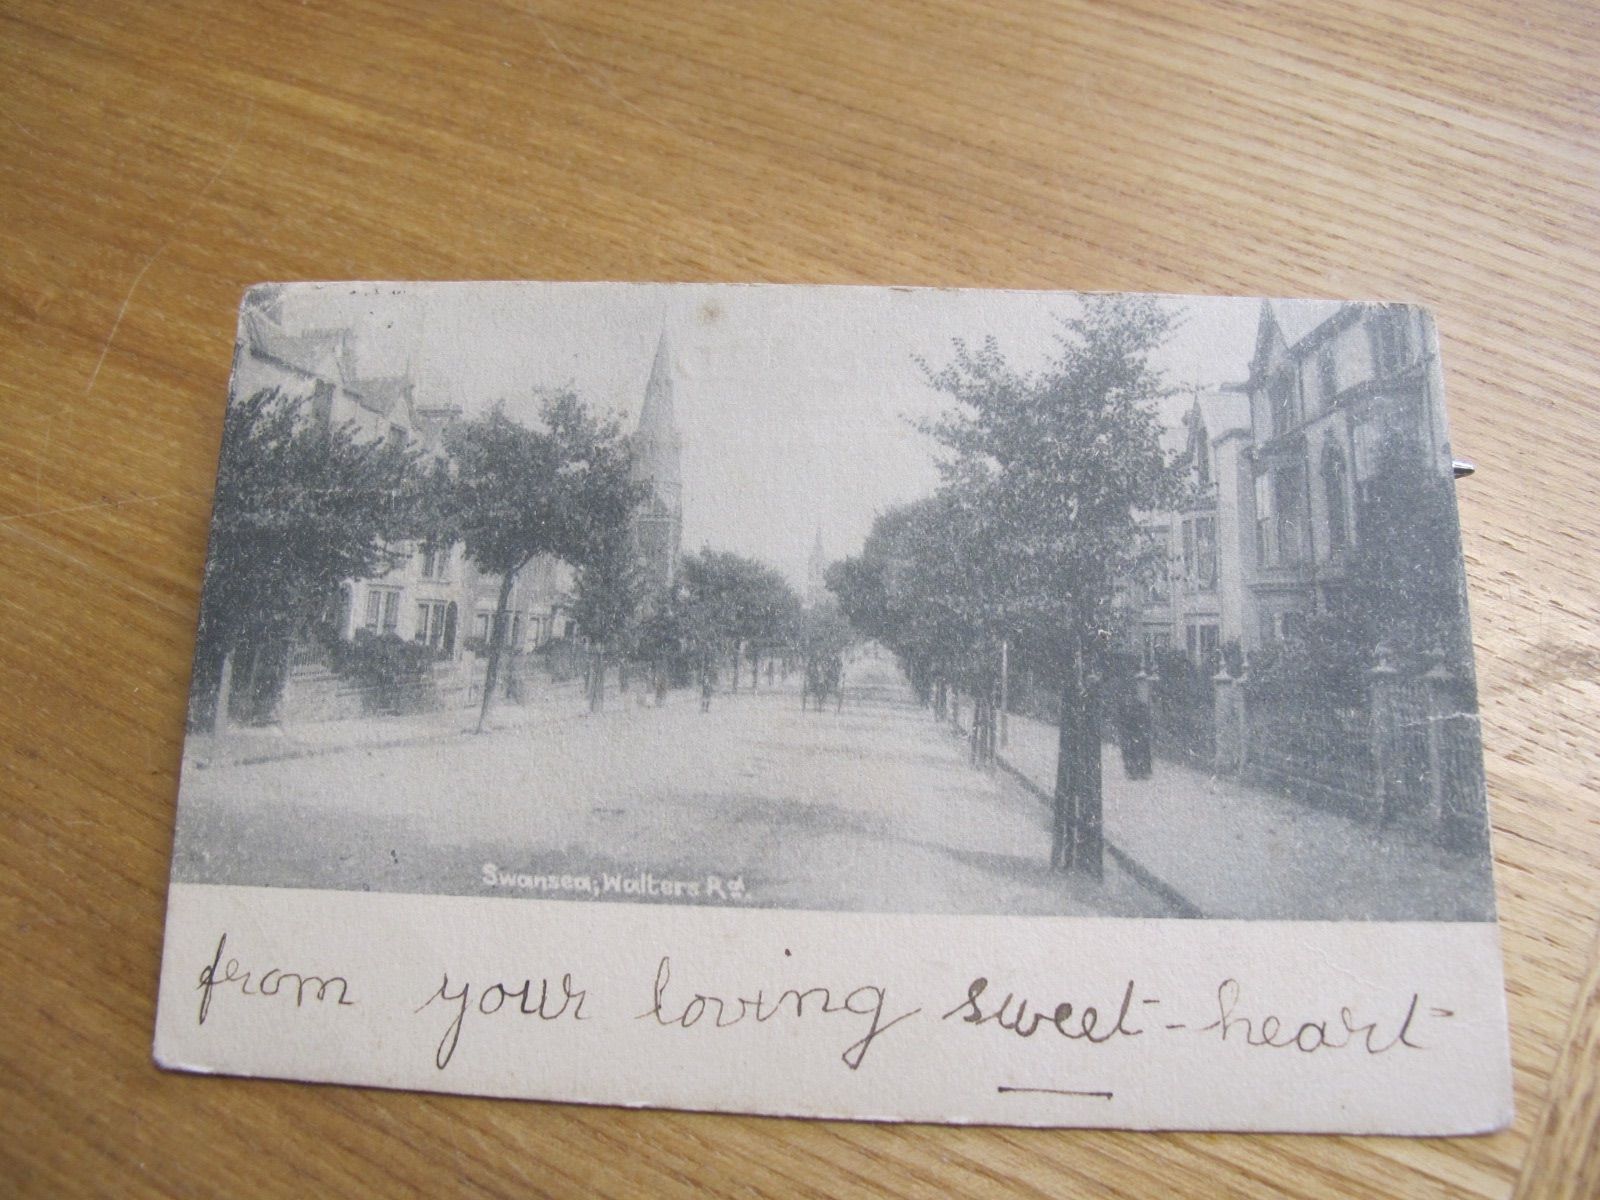 Swansea, Walters Rd.
from your loving sweet-heart